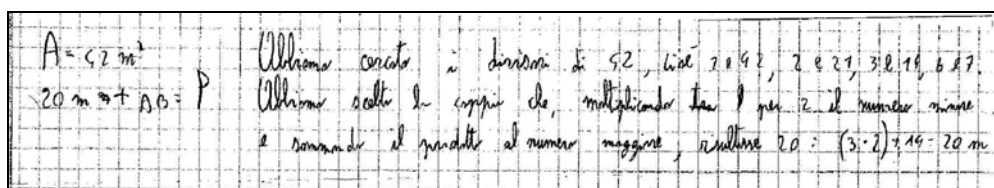 A = 42 m²
20 m + AB = P
Abbiamo cercato i divisori di 42, cioè 1 e 42, 2 e 21, 3 e 14, 6 e 7.
Abbiamo scelto la coppia che, moltiplicando per 2 il numero minore
e sommando il prodotto al numero maggiore, risultasse 20 : (3·2)+14 = 20 m